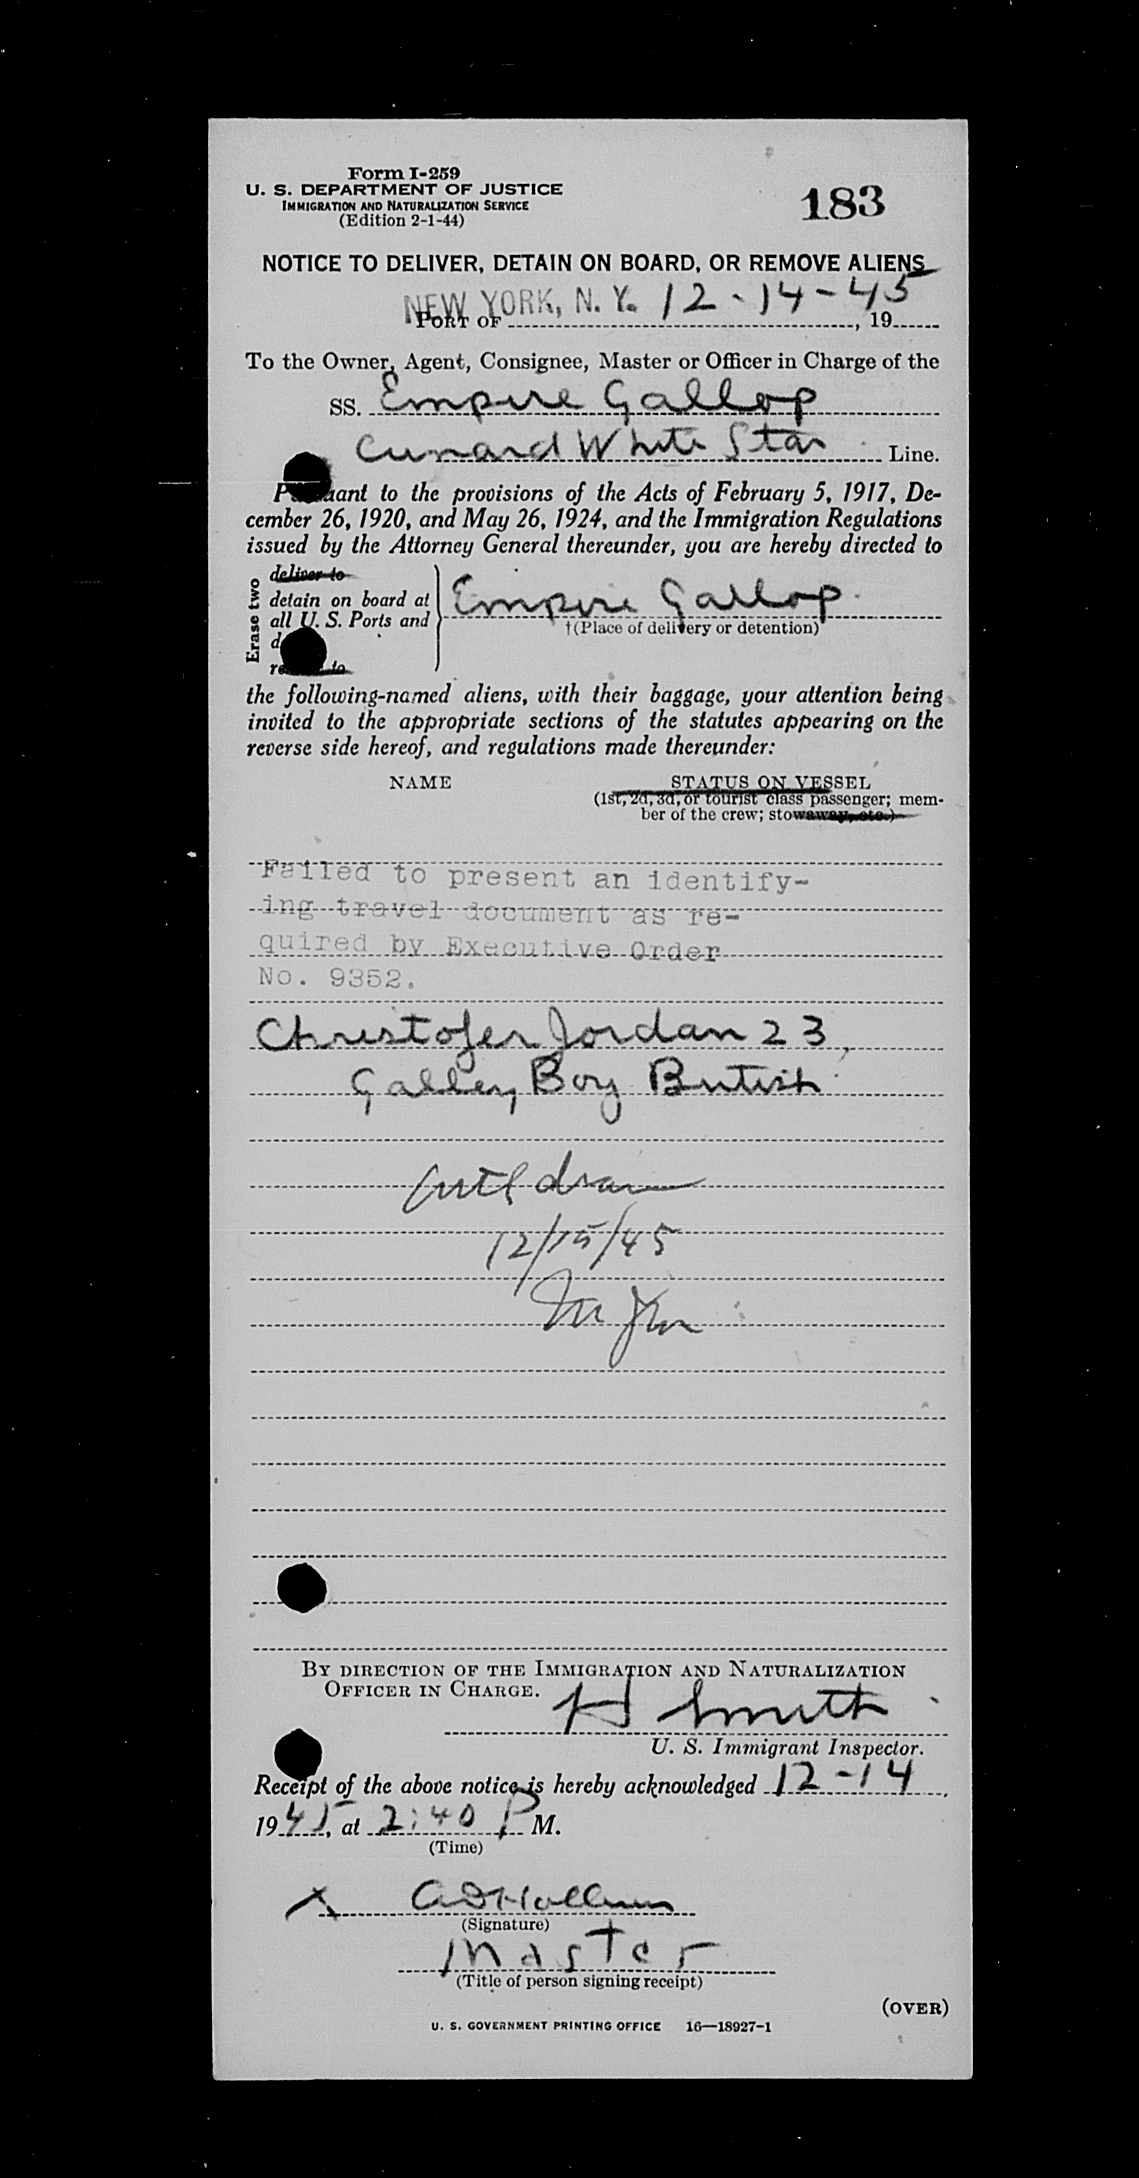 Form I-259
U. S. DEPARTMENT OF JUSTICE
IMMIGRATION AND NATURALIZATION SERVICE
(Edition 2-1-44)
183
NOTICE TO DELIVER, DETAIN ON BOARD, OR REMOVE ALIENS
NEW YORK, N. Y. 12-14-45
PORT OF , 19
To the Owner, Agent, Consignee, Master or Officer in Charge of the
SS. Empire Gallop
Cunard White Star Line.
Pursuant to the provisions of the Acts of February 5, 1917, De-
cember 26, 1920, and May 26, 1924, and the Immigration Regulations
issued by the Attorney General thereunder, you are hereby directed to
Erase two
deliver to
detain on board at
all U. S. Ports and
Empire Gallop
†(Place of delivery or detention)
the following-named aliens, with their baggage, your attention being
invited to the appropriate sections of the statutes appearing on the
reverse side hereof, and regulations made thereunder:
NAME STATUS ON VESSEL
(1st, 2d, 3d, or tourist class passenger; mem-
ber of the crew; stowaway, etc.)
Failed to present an identify-
ing travel document as re-
quired by Executive Order
No. 9352.
Christofer Jordan 23,
Galley Boy British
12/15/45
BY DIRECTION OF THE IMMIGRATION AND NATURALIZATION
OFFICER IN CHARGE.
H Smith
U. S. Immigrant Inspector.
Receipt of the above notice is hereby acknowledged 12-14,
1945, at 2:40 P M.
(Time)
X
(Signature)
Master
(Title of person signing receipt)
(OVER)
U. S. GOVERNMENT PRINTING OFFICE 16—18927-1